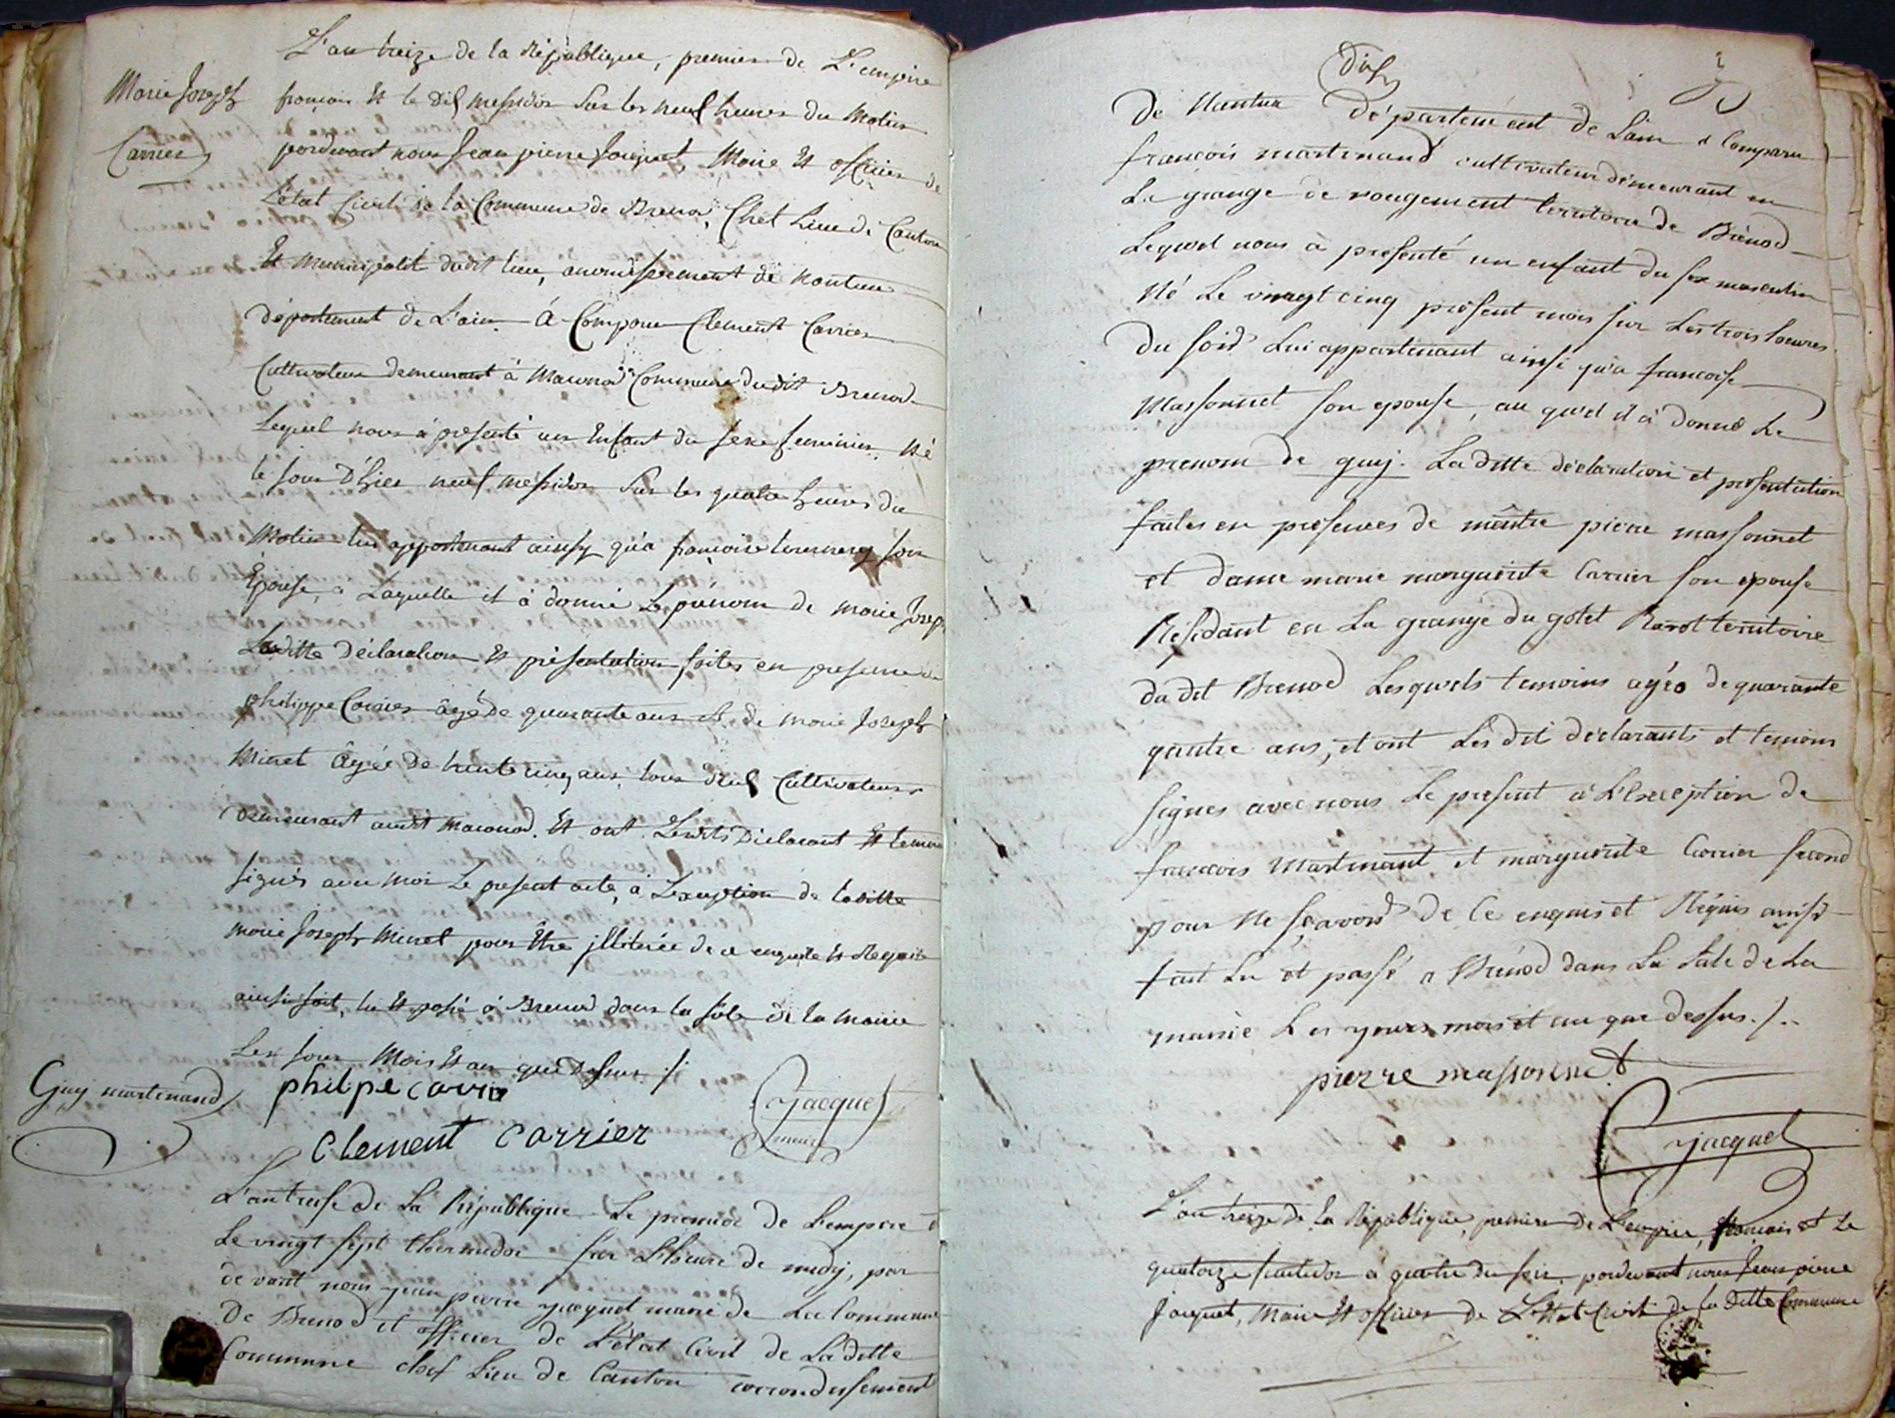 L'an treize de la République, premier de L'empire
Marie Joseph
Carrier
françois Et le dix messidor Sur les neuf heures du Matin
pardevant nous Jean pierre Jacquet, Maire Et officier de
L'état Civil de la Commune de Brenod, Chef Lieu de Canton
Et municipalité dudit lieu, arrondissement de nantua
département de L'ain. à Comparu Clement Carrier
Cultivateur demeurant à Maconod Commune dudit Brenod
Lequel nous à présenté un Enfant du sexe feminin, Né
le jour D'hier neuf messidor Sur les quatre heures du
Matin lui appartenant ainsy qu'a françoise son
Epouse, a Laquelle il à donné Le prénom de marie Joseph
Laditte Déclaration Et présentation faites en presence de
philippe Carrier âgé de quarante ans Et de marie Joseph
Minet Âgée de trente cinq ans, tous deux Cultivateurs
demeurant audit maconod. Et ont Lesdits Déclarant Et temoin
signés avec moi Le present acte, à L'exception de laditte
marie Joseph Minet pour Etre illiterée de ce enquise Et Requise
ainsi fait, lu Et passé à Brenod dans la sale de la mairie
Les jour Mois Et an que dessus ./.
Guy martinand
philpe carrie
Jacquet
maire
clement carrier
L'an treise de La République Le premier de L'empire et
Le vingt sept thermidor sur L'heure de midy, par
devant nous jean pierre jacquet maire de La Commune
De Brenod et officier de L'état Civil de La ditte
Commune chef Lieu de Canton arrondissement
Dix
de Nantua département de L'ain a Comparu
francois martinand cultivateur demeurant en
La grange de rougemont territoire de Brénod
Lequel nous à présenté un enfant du sex masculin
Né Le vingt cinq présent mois sur Les trois heures
du soir Lui appartenant ainsi qu'a francoise
Massonnet son epouse, au quel il à donné Le
prenom de guy. La ditte déclaration et présentation
faites en présences de maître pierre massonnet
et dame marie marguerite Carrier son epouse
Résidant en La grange du golet Ravot territoire
du dit Brenod Lesquels temoins agés de quarante
quatre ans, et ont Les dit déclarants et temoins
signés avec nous Le présent à L'exception de
francois Martinant et marguerite Carrier second
pour Ne sçavoir de Ce enquis et Réquis ainsi
fait Lu et passé a Brénod dans La Sale de La
mairie Les jours mois et an que dessus ./.
pierre massonnet
Jacquet
L'an treize de la République, premier de L'empire, françois et le
quatorze fructidor à quatre du soir. pardevant nous Jean pierre
Jacquet, Maire Et officier de L'état Civil de la ditte Commune